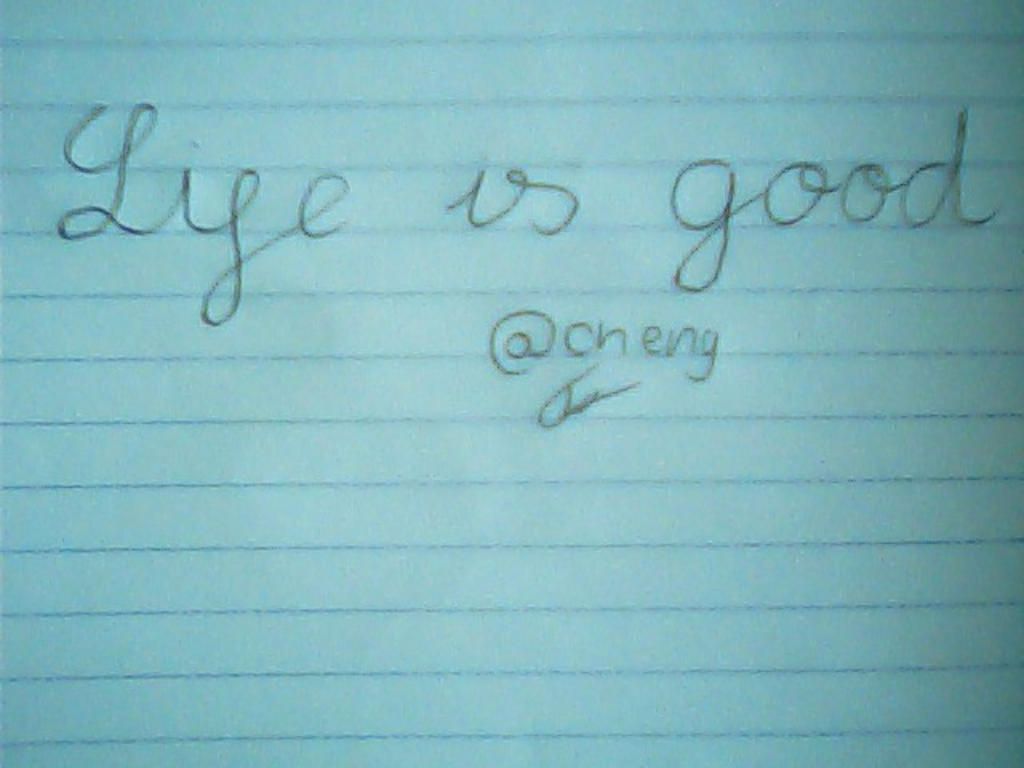 Life is good
@cheng